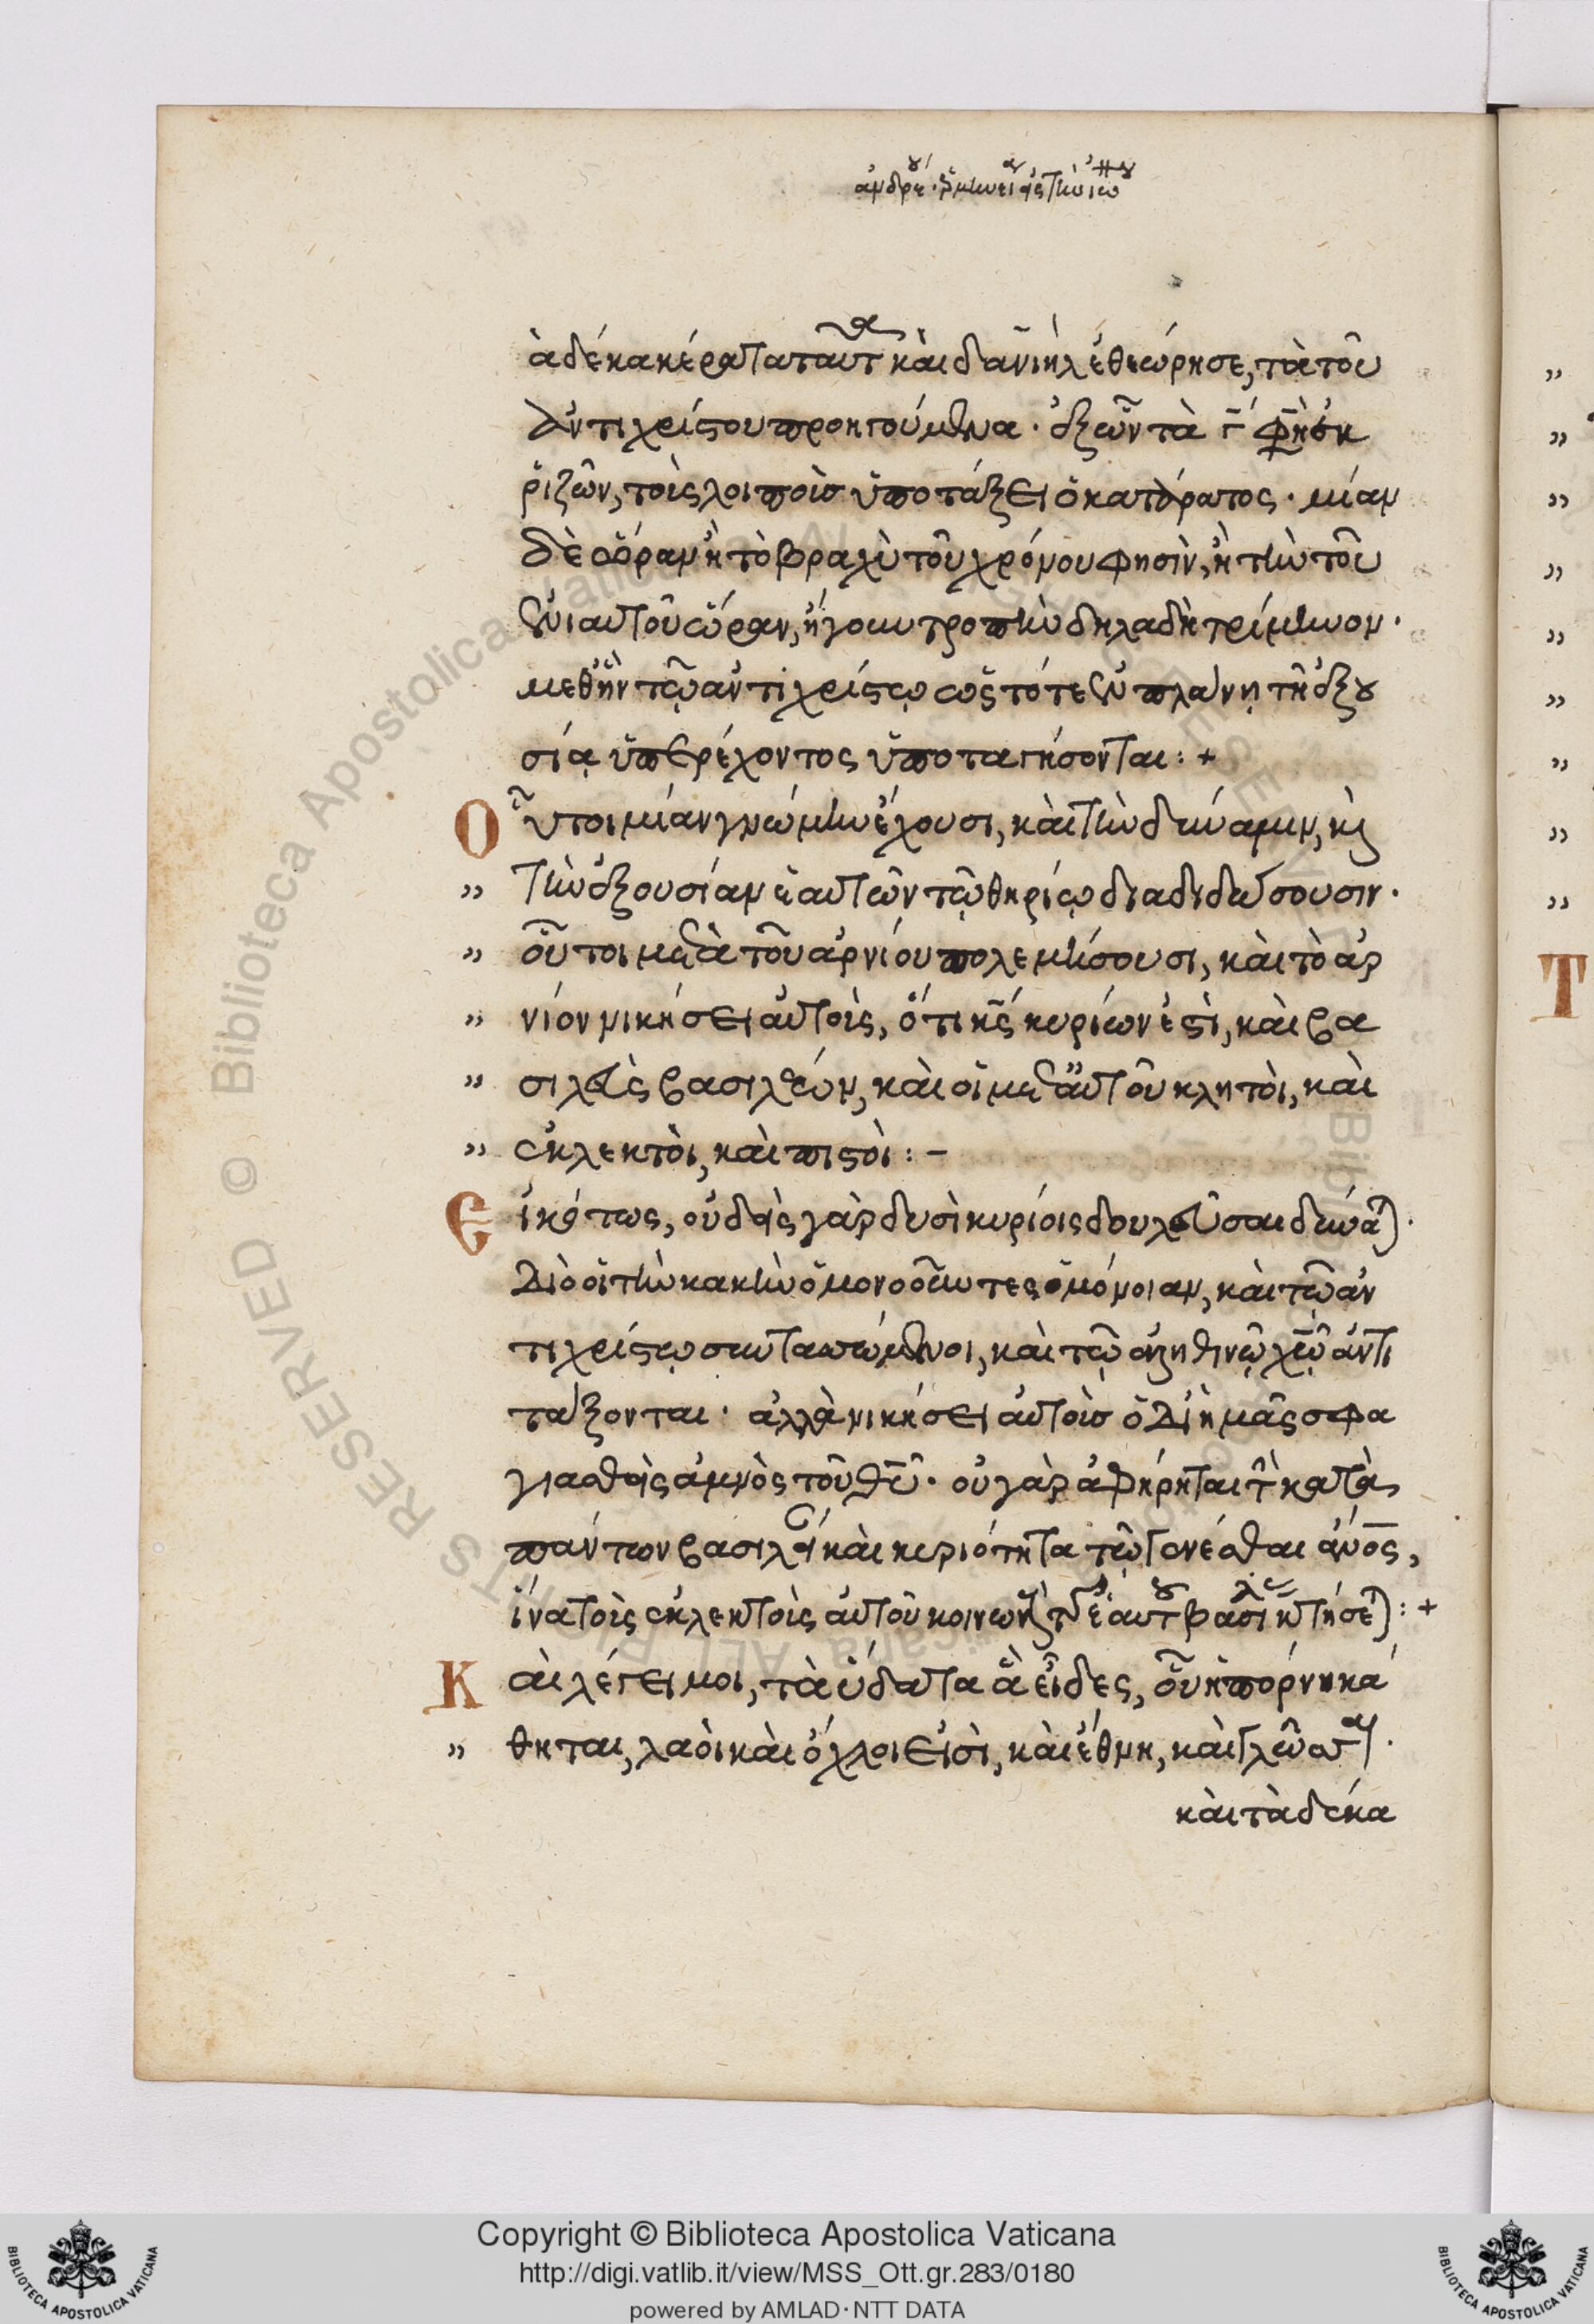 ἀνδρέου ἑρμηνεία εἰς τὴν ἀπο
ἃ δέκα κέρατα ταῦτα καὶ δανιὴλ ἐθεώρησε, τὰ τοῦ
ἀντιχρίστου προηγούμενα. ἐξ ὧν τὰ γ φησὶν ἐκ
ριζῶν, τοῖς λοιποῖς ὑποτάξει ὁ κατάρατος. μίαν
δὲ ὥραν ἢ τὸ βραχὺ τοῦ χρόνου φησὶν, ἢ τὴν τοῦ
ἐνιαυτοῦ ὥραν, ἤγουν τροπὴν δηλαδὴ τρίμηνον.
μεθ' ἣν τῷ ἀντιχρίστῳ ὡς τότε ἐν πλάνῃ τῇ ἐξου
σίᾳ ὑπερέχοντος ὑποταγήσονται:+
Οὗτοι μίαν γνώμην ἔχουσι, καὶ τὴν δύναμιν, κὶ
" τὴν ἐξουσίαν ἑαυτῶν τῷ θηρίῳ διαδιδώσουσιν.
" οὗτοι μετὰ τοῦ ἀρνίου πολεμήσουσι, καὶ τὸ ἀρ
" νίον νικήσει αὐτοὺς, ὅτι κς κυρίων ἐστὶ, καὶ βα
" σιλεὺς βασιλέων, καὶ οἱ μετ' αὐτοῦ κλητοὶ, καὶ
" ἐκλεκτοὶ, καὶ πιστοὶ:-
Εἰκότως, οὐδεὶς γὰρ δυσὶ κυρίοις δουλεῦσαι δύναται.
Διὸ οἱ τὴν κακὴν ὁμονοοῦντες ὁμόνοιαν, καὶ τῷ ἀν
τιχρίστῳ συνταττόμενοι, καὶ τῷ ἀληθινῷ χῷ ἀντι
τάξονται. ἀλλὰ νικήσει αὐτοὺς ὁ δι' ἡμᾶς σφα
γιασθεὶς ἀμνὸς τοῦ θῦ. οὐ γὰρ ἀφήρηται τὴν κατὰ
πάντων βασιλείαν καὶ κυριότητα τῷ γενέσθαι ἀνος,
ἵνα τοὺς ἐκλεκτοὺς αὐτοῦ κοινωνοὺς τῆς ἑαυτοῦ βασιλείας κτήσεται:+
Καὶ λέγει μοι, τὰ ὕδατα ἃ εἶδες, οὗ ἡ πόρνη κά
" θηται, λαοὶ καὶ ὄχλοι εἰσὶ, καὶ ἔθνη, καὶ γλῶσσαι.
καὶ τὰ δέκα
Τ
Copyright © Biblioteca Apostolica Vaticana
http://digi.vatlib.it/view/MSS_Ott.gr.283/0180
powered by AMLAD·NTT DATA